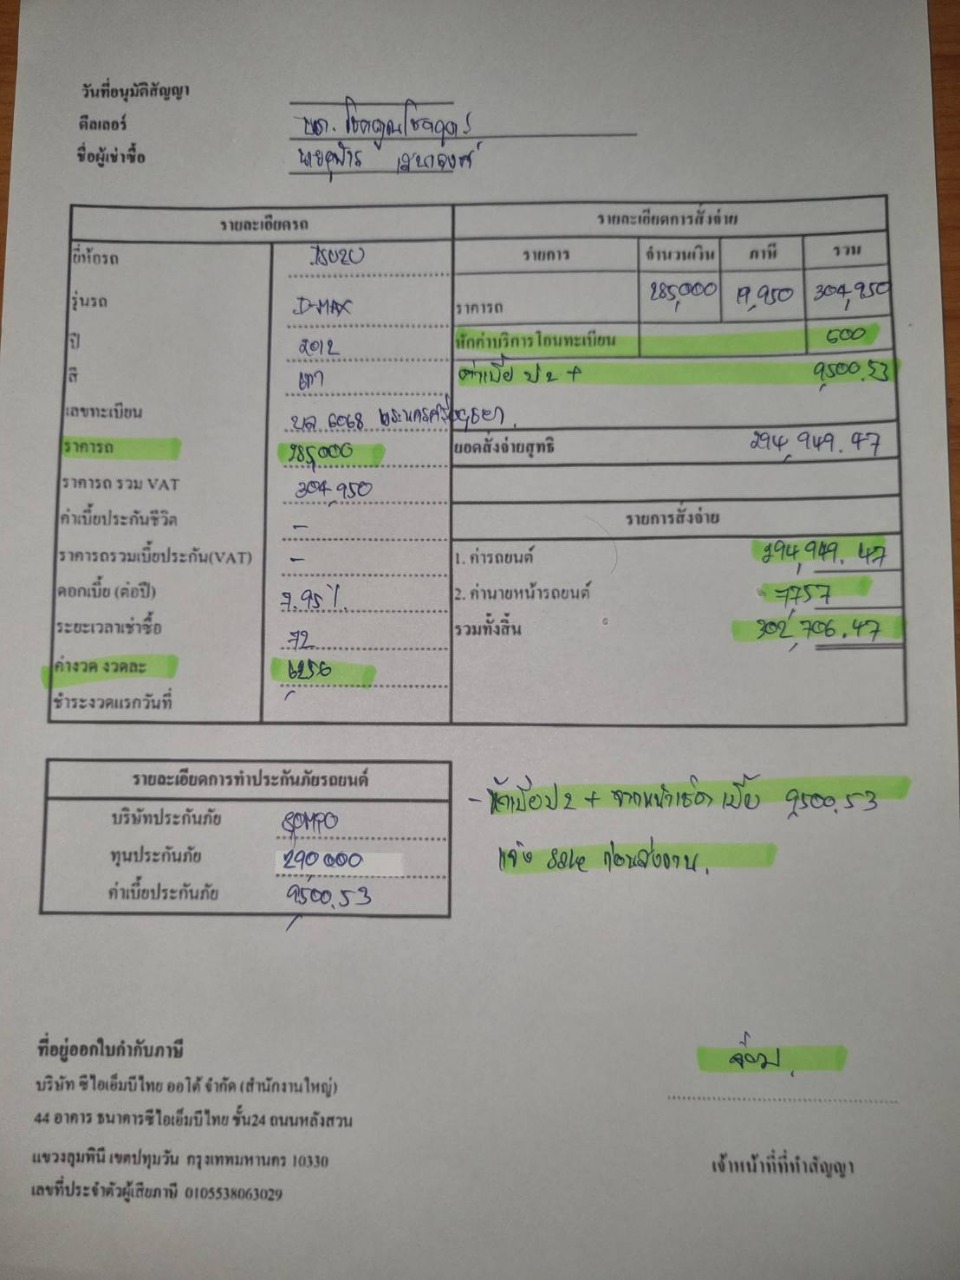 วันที่อนุมัติสัญญา
ดีลเลอร์ หจก. โชคคูณโชคถาวร
ชื่อผู้เช่าซื้อ
รายละเอียดรถ
ยี่ห้อรถ ISUZU
รุ่นรถ D-MAX
ปี 2012
สี เทา
เลขทะเบียน บล 6068 พระนครศรีอยุธยา
ราคารถ 285,000
ราคารถ รวม VAT 304,950
ค่าเบี้ยประกันชีวิต -
ราคารถรวมเบี้ยประกัน(VAT) -
ดอกเบี้ย (ต่อปี) 7.95 %
ระยะเวลาเช่าซื้อ 72
ค่างวด งวดละ 6256
ชำระงวดแรกวันที่
รายละเอียดการสั่งจ่าย
รายการ จำนวนเงิน ภาษี รวม
ราคารถ 285,000 19,950 304,950
หักค่าบริการโอนทะเบียน 600
ค่าเบี้ย ป 2 + 9500.53
ยอดสั่งจ่ายสุทธิ 294,949.47
รายการสั่งจ่าย
1. ค่ารถยนต์ 294,949.47
2. ค่านายหน้ารถยนต์ 7757
รวมทั้งสิ้น 302,706.47
รายละเอียดการทำประกันภัยรถยนต์
บริษัทประกันภัย SOMPO
ทุนประกันภัย 290000
ค่าเบี้ยประกันภัย 9500.53
- หักเบี้ย ป 2 + จากหน้าเช็ค เบี้ย 9,500.53
แจ้ง sale ก่อนส่งงาน.
ที่อยู่ออกใบกำกับภาษี
บริษัท ซีไอเอ็มบีไทย ออโต้ จำกัด (สำนักงานใหญ่)
44 อาคาร ธนาคารซีไอเอ็มบีไทย ชั้น24 ถนนหลังสวน
แขวงลุมพินี เขตปทุมวัน กรุงเทพมหานคร 10330
เลขที่ประจำตัวผู้เสียภาษี 0105538063029
เจ้าหน้าที่ที่ทำสัญญา